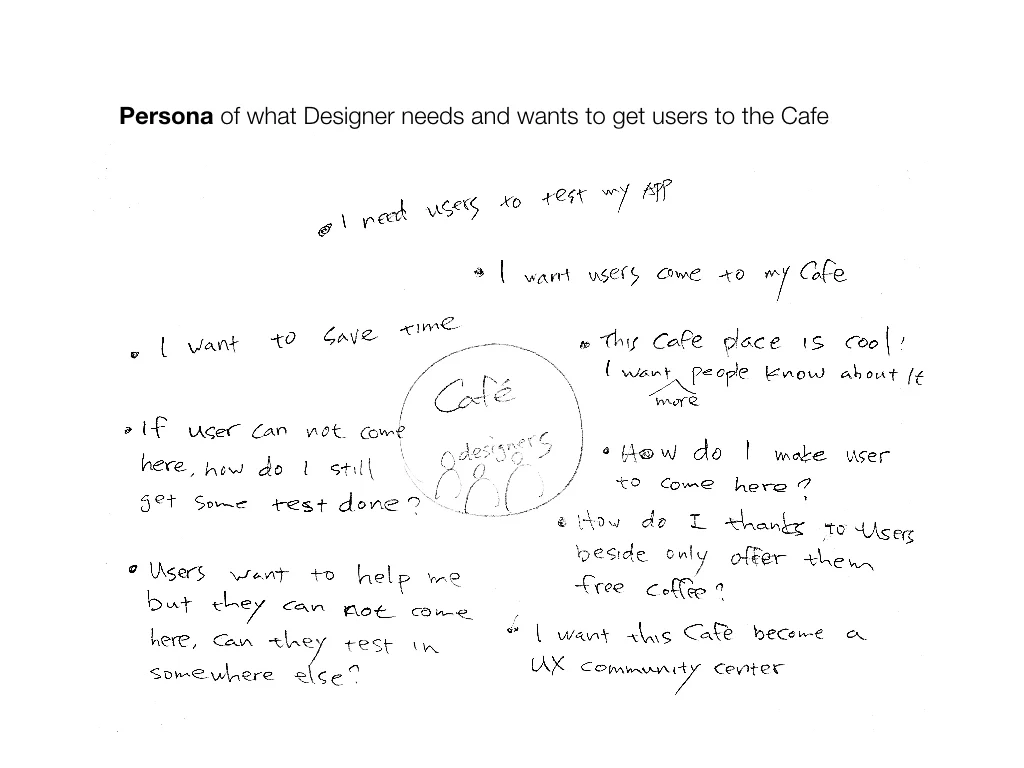 Persona of what Designer needs and wants to get users to the Cafe
• I need users to test my APP
• I want users come to my Cafe
• I want to save time
• This Cafe place is cool!
I want more people know about it
Café
designers
• If user can not come
here, how do I still
get some test done?
• How do I make user
to come here?
• How do I thanks to users
beside only offer them
free coffee?
• Users want to help me
but they can not come
here, can they test in
somewhere else?
• I want this Cafe become a
UX community center